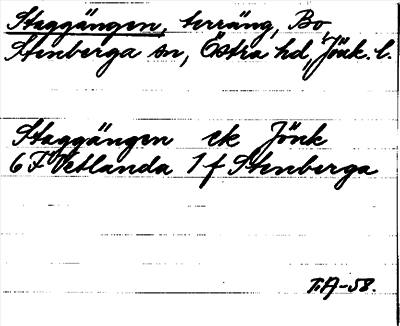 Staggängen, terräng, Bo,
Stenberga sn, Östra hd, Jönk. l.
Staggängen ek Jönk
6 F Vetlanda 1 f Stenberga
T.A-58.